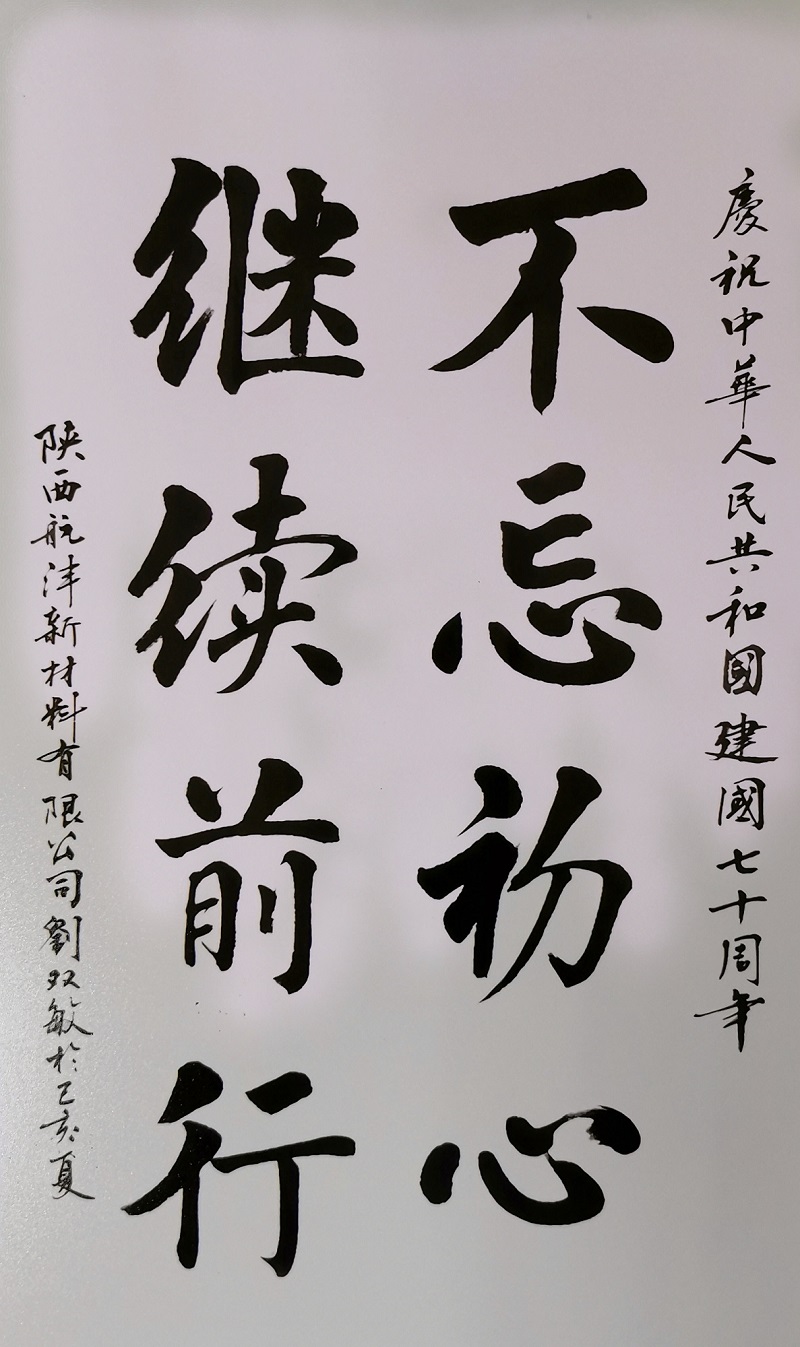 慶祝中華人民共和國建國七十周年
不忘初心
继续前行
陕西航沣新材料有限公司劉双敏於己亥夏